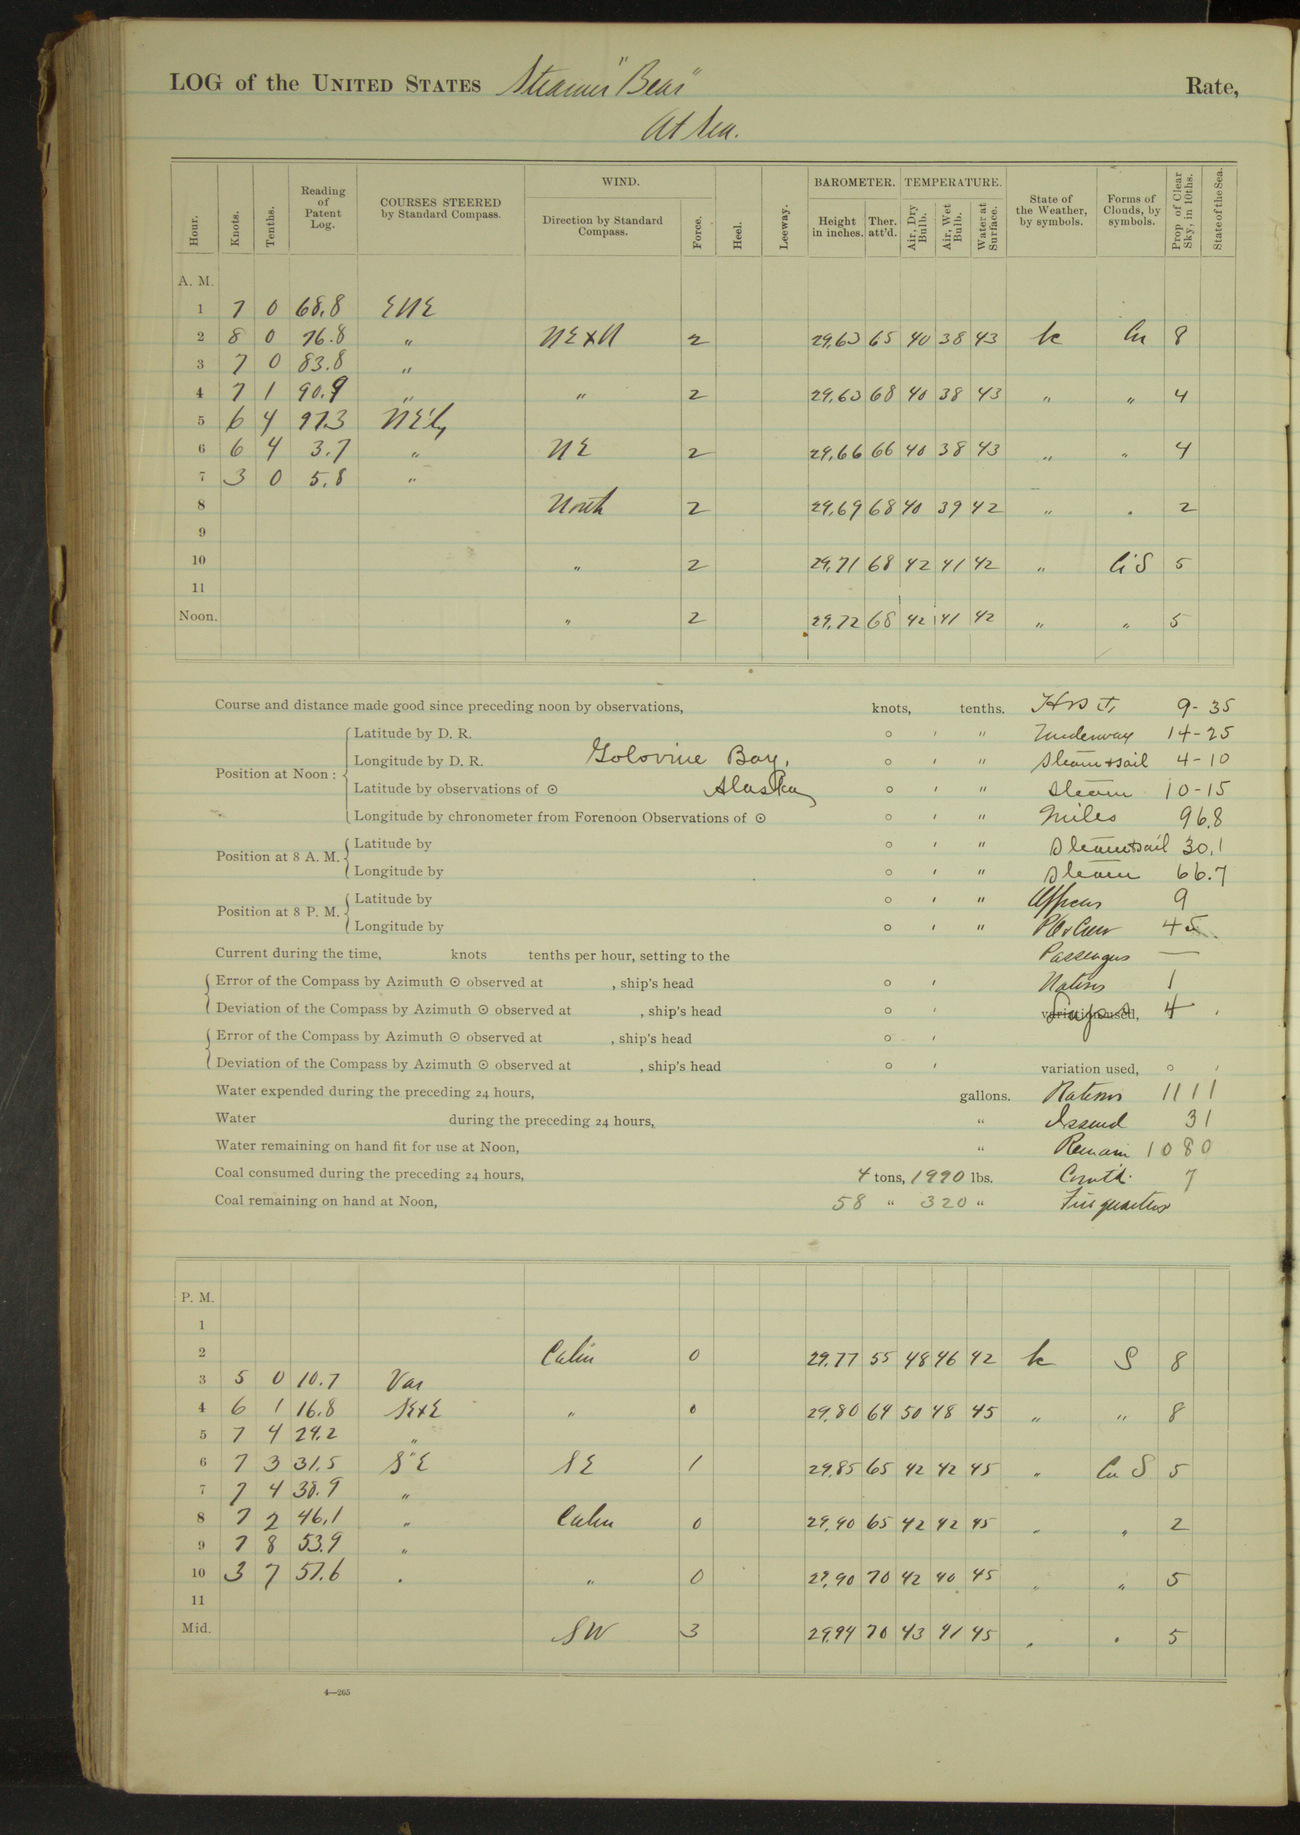 LOG of the UNITED STATES Steamer "Bear" Rate,
At Sea.
Hour. Knots. Tenths. Reading of Patent Log. COURSES STEERED by Standard Compass. WIND. Direction by Standard Compass. Force. Heel. Leeway. BAROMETER. Height in inches. Ther. att'd. TEMPERATURE. Air, Dry Bulb. Air, Wet Bulb. Water at Surface. State of the Weather, by symbols. Forms of Clouds, by symbols. Prop. of Clear Sky, in 10ths. State of the Sea.
A. M.
1 7 0 68.8 ENE
2 8 0 76.8 " NExN 2 29.63 65 40 38 43 bc Cu 8
3 7 0 83.8 "
4 7 1 90.9 " " 2 29.63 68 40 38 43 " " 4
5 6 4 97.3 NE'ly
6 6 4 3.7 " NE 2 29.66 66 40 38 43 " " 4
7 3 0 5.8 "
8 North 2 29.69 68 40 39 42 " " 2
9
10 " 2 29.71 68 42 41 42 " Ci S 5
11
Noon. " 2 29.72 68 42 41 42 " " 5
Course and distance made good since preceding noon by observations, knots, tenths. 9-35
Latitude by D. R. ° ' " Underway 14-25
Position at Noon: Longitude by D. R. Golovine Bay, ° ' " Steam & sail 4-10
Latitude by observations of ☉ Alaska ° ' " Steam 10-15
Longitude by chronometer from Forenoon Observations of ☉ ° ' " Miles 96.8
Position at 8 A. M. Latitude by ° ' " Steam & sail 30.1
Longitude by ° ' " Steam 66.7
Position at 8 P. M. Latitude by ° ' " Officers 9
Longitude by ° ' " Crew 45
Current during the time, knots tenths per hour, setting to the Passengers —
Error of the Compass by Azimuth ☉ observed at , ship's head ° ' Natives 1
Deviation of the Compass by Azimuth ☉ observed at , ship's head ° ' variation used, 4
Error of the Compass by Azimuth ☉ observed at , ship's head ° '
Deviation of the Compass by Azimuth ☉ observed at , ship's head ° ' variation used, ° '
Water expended during the preceding 24 hours, gallons. Rations 1111
Water during the preceding 24 hours, " Issued 31
Water remaining on hand fit for use at Noon, " Remain 1080
Coal consumed during the preceding 24 hours, 4 tons, 1990 lbs. Com'td. 7
Coal remaining on hand at Noon, 58 " 320 " Fire quarters
P. M.
1
2 Calm 0 29.77 55 48 46 42 bc S 8
3 5 0 10.7 Var
4 6 1 16.8 SExE " 0 29.80 64 50 48 45 " " 8
5 7 4 24.2 "
6 7 3 31.5 S'E SE 1 29.85 65 42 42 45 " Cu S 5
7 7 4 38.9 "
8 7 2 46.1 " Calm 0 29.90 65 42 42 45 " " 2
9 7 8 53.9 "
10 3 7 57.6 " " 0 29.90 70 42 40 45 " " 5
11
Mid. SW 3 29.94 70 43 41 45 " " 5
4—265